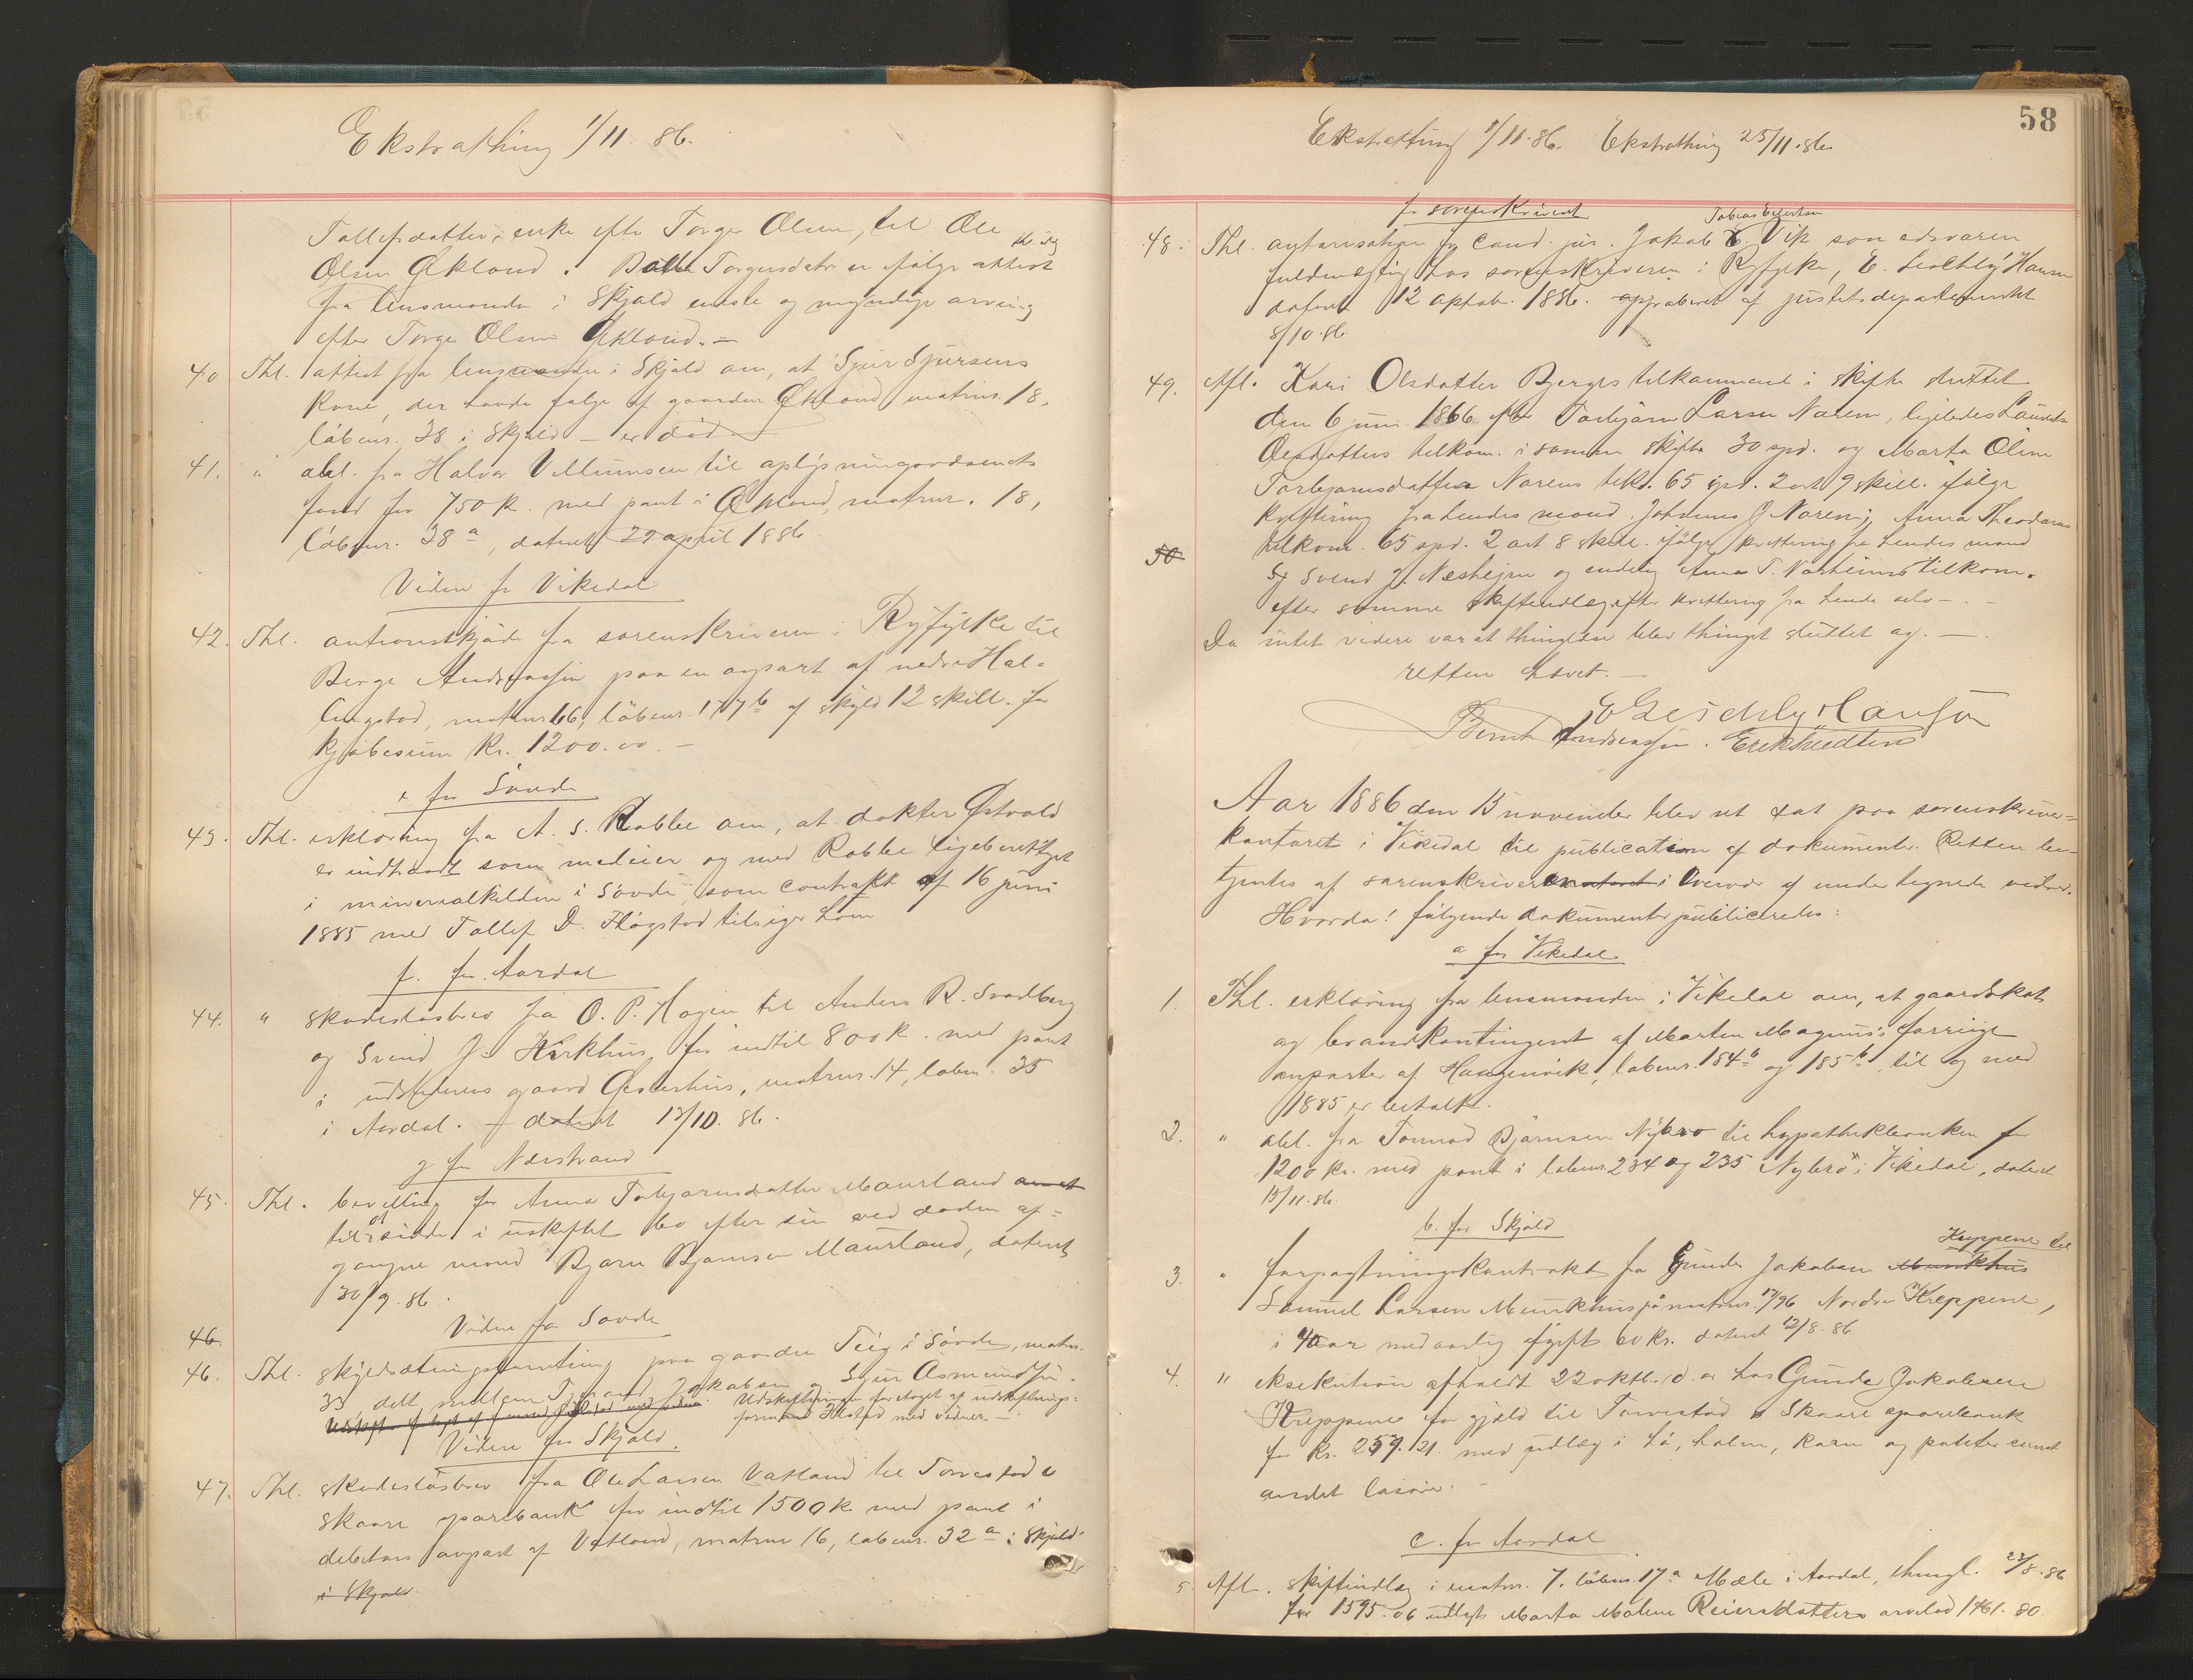 Ekstrathing 1/11 86.
Tollefsdatter, enke efter Torger Olsen, til Ole
Olsen Økland. Torgersdatter er ifølge attest
fra lensmanden i Skjold eneste og myndige arving
efter Torger Olsen Økland. —
40 Thl. attest fra lensmanden i Skjold om, at Sjur Sjursens
kone, der havde folge af gaarden Økland matrnr. 18,
löbenr. 38 i Skjold — er död —
41. " obl. fra Halvor Villumsen til oplysningsvæsenets
fond for 750 k. med pant i Økland, matrnr. 18,
löbenr. 38 a, dateret 29 april 1886.
Videre fr Vikedal
42. Thl. auktionsskjöde fra sorenskriveren i Ryfylke til
Berge Andreassen paa en anpart af nedre Hal-
lingstad, matrnr 66, löbenr. 177 b af skyld 12 skill. for
kjöbesum Kr. 1200.00. —
e for Sövde
43. Thl. erklæring fra A. S. Rabbe om, at doktor Østvold
er indtraadt som medeier og med Rabbe ligeberettiget
i mineralkilden i Sövde, som contrakt af 16 juni
1885 med Tollef D. Fløgstad tilsiger ham
f. for Aardal
44. " skadeslösbrev fra O. P. Hagen til Anders R. Svadberg
og Svend J. Kirkhus for indtil 800 k. med pant
i udstederens gaard Østerhus, matrnr. 14, löbenr. 35
i Aardal. — dateret 13/10. 86.
g for Nerstrand
45. Thl. bevilling for Anna Torbjørnsdatter Maurland
til at sidde i uskiftet bo efter sin ved döden af-
gangne mand Bjørn Bjørnsen Maurland, dateret
30/9. 86.
Videre for Sövde
46.
46. Thl. skyldsætningsforretning paa gaarden Teig i Sövde, matrnr.
33, delt mellem Jakobsen og Sjur Asmundsen.
Udskiftningen foretaget af udskiftnings-
formand Hustad med vidner. —
Videre for Skjold.
47. Thl. skadeslösbrev fra Ole Larsen Vatland til Torvestad &
Skaare sparebank for indtil 1500 k. med pant i
debitors anpart af Vatland, matrnr 16, löbenr. 32 a i Skjold.
i Skjold.
58
Ekstrathing 1/11. 86. Ekstrathing 25/11. 86.
fr sorenskriveriet
48. Thl. autorisation for Cand. jur. Jakob Tobias Eilertsen Vik som edsvoren
fuldmægtig hos sorenskriveren i Ryfylke, E. Hansen
dateret 12 oktob. 1886. approberet af justitsdepartementet
8/10. 86.
49. Afl. Kari Olsdatter Berges tilkommende i skifte sluttet
den 6 juni 1866 efter Torbjørn Larsen Norem, ligeledes
Olsdatters tilkom. i samme skifte 30 spd. og Marta Oline
Torbjørnsdatter Norems tilk. 65 spd. 2 ort 9 skill. ifølge
kvittering fra hendes mand Johannes J. Norem; Anna Theodoras
tilkom. 65 spd. 2 ort 8 skill. ifølge kvittering fra hendes mand
50
Svend J. Næshejm og endelig Anna T. Norheims tilkom.
efter samme skifteudlæg efter kvittering fra hende selv —. —
Da intet videre var at thinglæse blev thinget sluttet og. —
retten hævet. —
E Geschely Hansen
Bernt Andreassen. Erik Svedsen
Aar 1886 den 15 november blev ret sat paa sorenskriver-
kontoret i Vikedal til publication af dokumenter. Retten be-
tjentes af sorenskriveren i Overvær af undertegnede vidner.
Hvorda! følgende dokumenter publiceredes:
a for Vikedal
1. Thl. erklæring fra lensmanden i Vikedal om, at gaardskat
og brandkontingent af Morten Magnus's forrige
anparter af Haugenvik, løbenr. 184 b og 185 b, til og med
1885 er betalt.
2. " obl. fra Tormod Bjørnsen Nybrø til hypothekbanken for
1200 kr. med pant i løbenr. 234 og 235 "Nybrö" i Vikedal, dateret
13/11. 86.
b. for Skjold
3. " forpagtningskontrakt fra Gunder Jakobsen Munkhus Kreppene til
Samuel Larsen Munkhus på matrnr. 17/96 Nordre Kreppene,
i 40 aar med aarlig afgift 60 kr. dateret 12/8. 86
4. " eksekution afholdt 22 oktb. d. a. hos Gunder Jakobsen
Kreppene for gjæld til Torvestad & Skaare sparebank
for kr. 259. 21. med udlæg i hö, halm, korn og poteter samt
andet løsøre. —
c. for Aardal
5. Afl. skifteudlæg i matrnr. 7. löbenr. 17 a Mæle i Aardal, thingl. 23/8. 86
for 1595. 06 udlagt Marta Malene Reiersdatters arvelod 1461. 80.